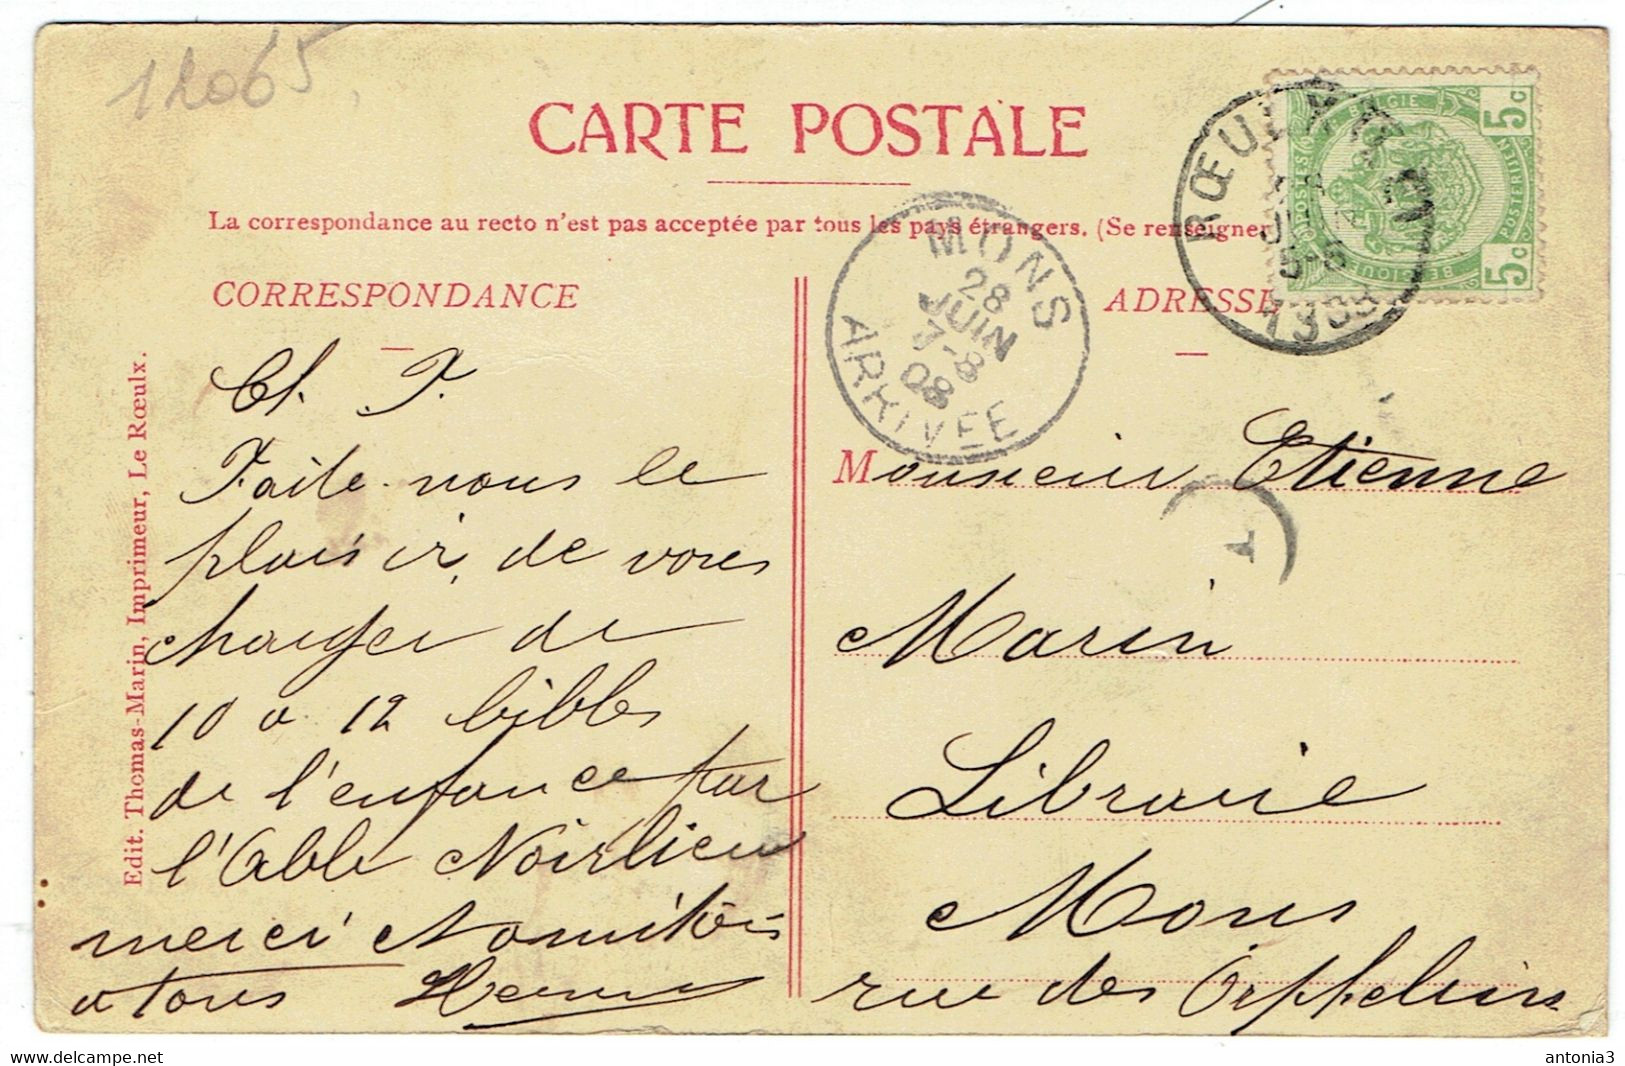 12065
CARTE POSTALE
La correspondance au recto n'est pas acceptée par tous les pays étrangers. (Se renseigner
CORRESPONDANCE
ADRESSE
RŒULX
5-6
MONS
28
JUIN
7-8
08
ARRIVÉE
BELGIE
5c
POSTERIJEN
POSTES
BELGIQUE
5c
Edit. Thomas-Marin, Imprimeur, Le Rœulx.
Ch. F.
Faite-nous le
plaisir, de vous
charger de
10 a 12 bibles
de l'enfance par
l'Abbé Noirlieu
merci
a tous
Monsieur Etienne
T
Marin
Librairie
Mons
rue des Orphelins
www.delcampe.net
antonia3